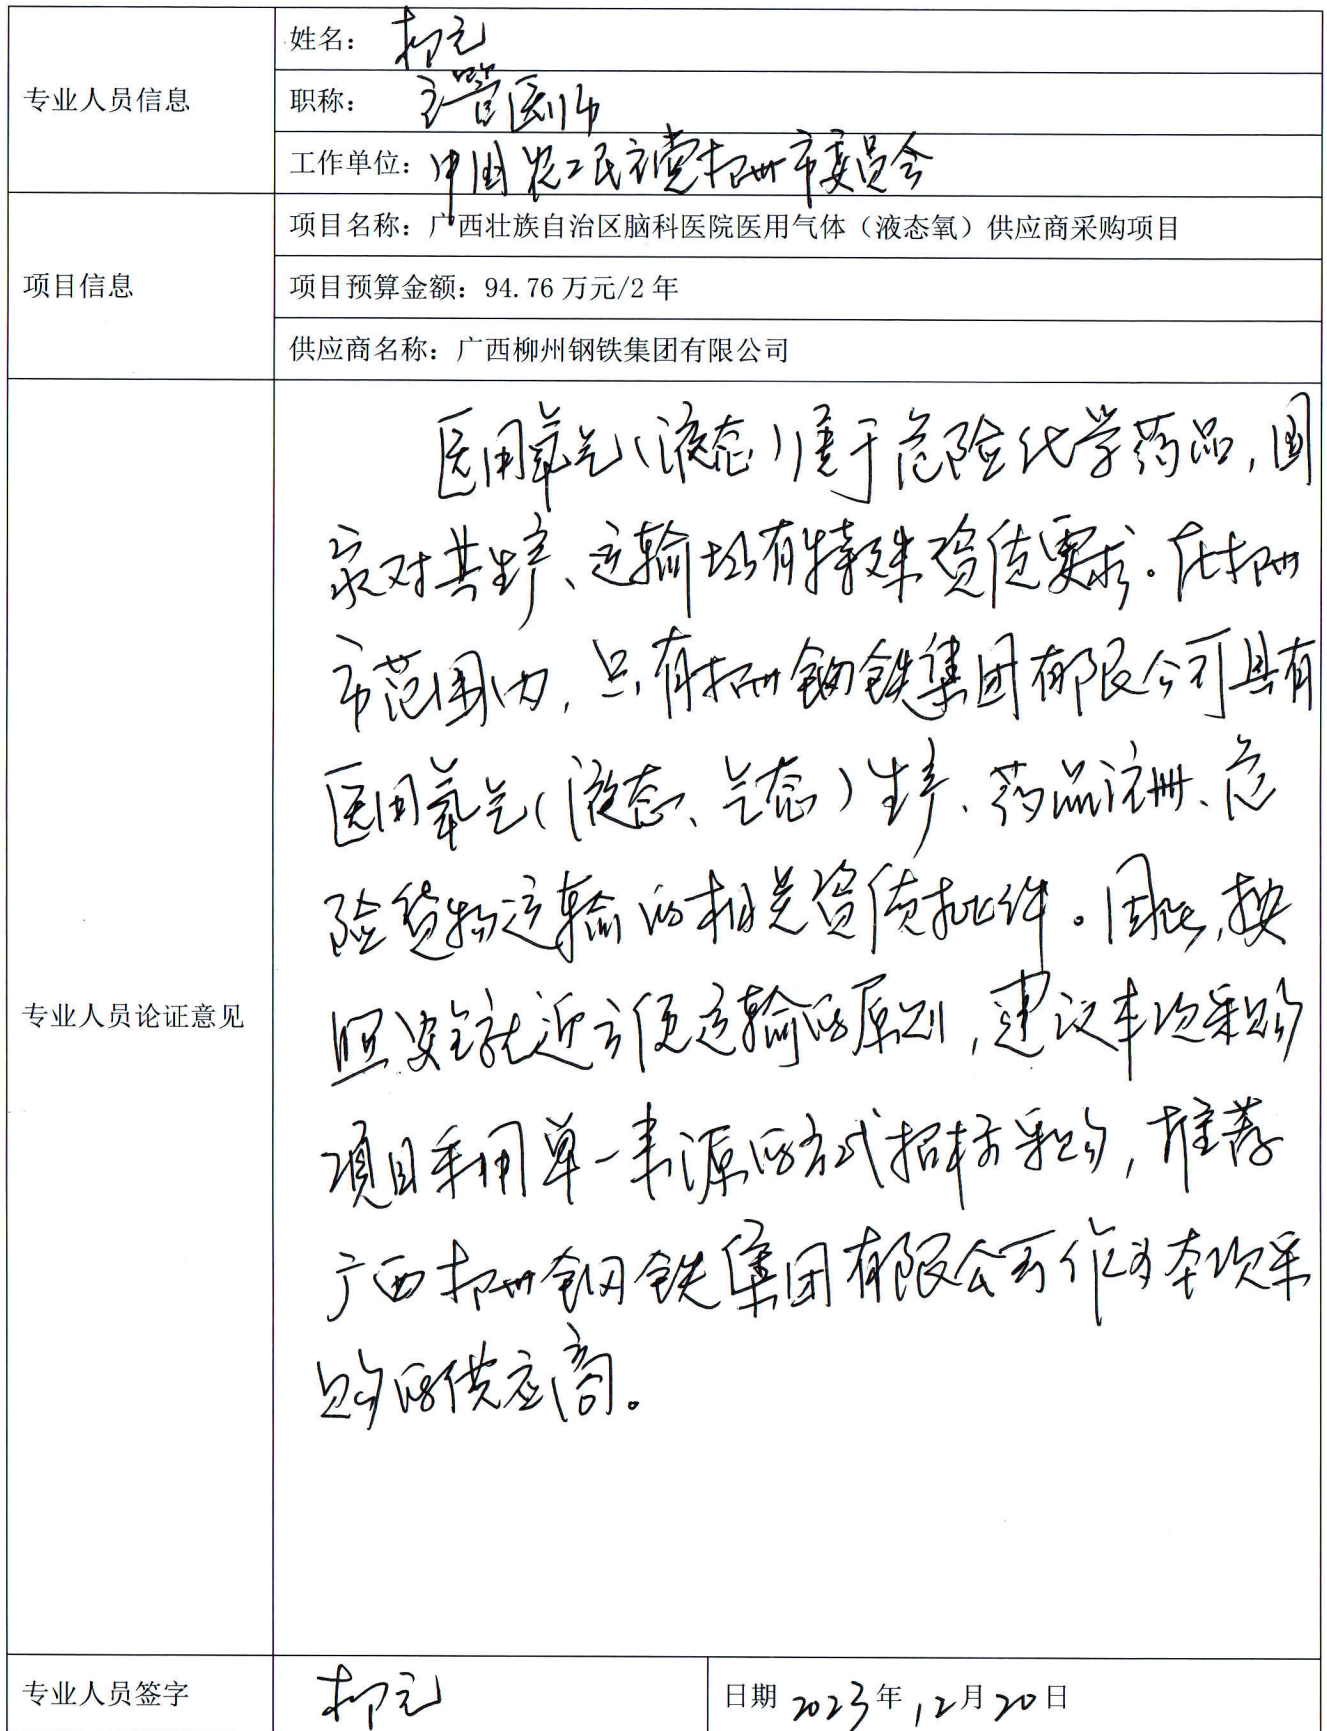 专业人员信息
姓名：柳元
职称：主管医师
工作单位：中国农工民主党柳州市委员会
项目信息
项目名称：广西壮族自治区脑科医院医用气体（液态氧）供应商采购项目
项目预算金额：94.76万元/2年
供应商名称：广西柳州钢铁集团有限公司
专业人员论证意见
医用氧气（液态）属于危险化学药品，国
家对其生产、运输均有特殊资质要求。在柳州
市范围内，只有柳州钢铁集团有限公司具有
医用氧气（液态、气态）生产、药品注册、危
险货物运输的相关资质批件。因此，按
照安全就近方便运输的原则，建议本次采购
项目采用单一来源的方式招标采购，推荐
广西柳州钢铁集团有限公司作为本次采
购的供应商。
专业人员签字
柳元
日期 2023年12月20日